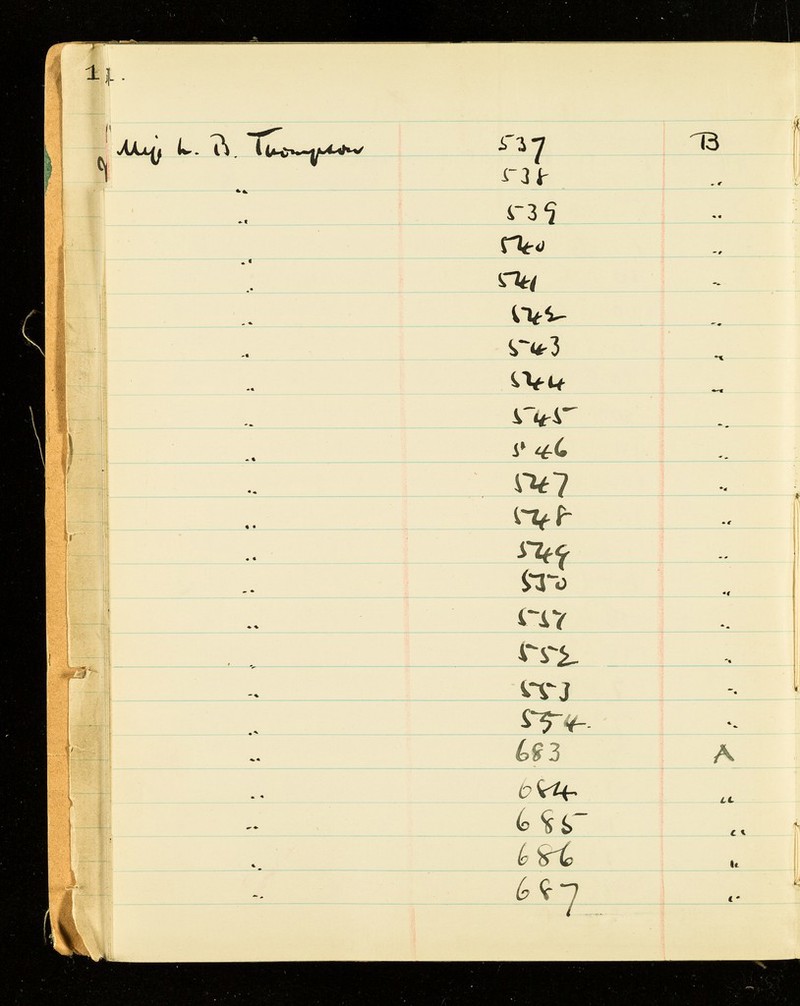 11.
Miss L. B. Thompson 537 B
" 538 "
" 539 "
" 540 "
" 541 "
" 542 "
" 543 "
" 544 "
" 545 "
" 546 "
" 547 "
" 548 "
" 549 "
" 550 "
" 557 "
" 552 "
" 553 "
" 554. "
" 683 A
" 684 "
" 685 "
" 686 "
" 687 "